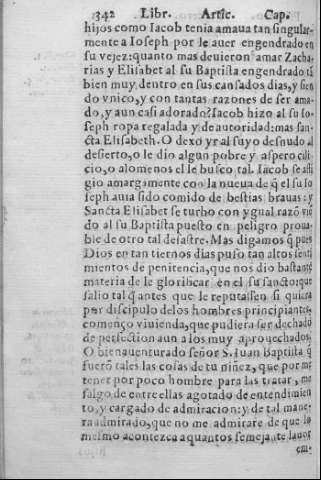 1342 Libr. Artic. Cap.
hijos como Iacob tenia amaua tan singular-
mente a Ioseph por le auer engendrado en
su vejez: quanto mas deuieron amar Zacha-
rias y Elisabet al su Baptista engendrado tã
bien muy dentro en sus cansados dias, y sien
do vnico, y con tantas razones de ser ama-
do, y aun casi adorado? Iacob hizo al su Io-
seph ropa regalada y de autoridad: mas san-
cta Elisabeth. O dexo yr al suyo desnudo al
desierto, o le dio algun pobre y aspero cili-
cio, o alomenos el le busco tal. Iacob se afli
gio amargamente con la nueua de q̃ el su Io
seph auia sido comido de bestias brauas: y
Sancta Elisabet se turbo con ygual razõ viẽ
do al su Baptista puesto en peligro proua-
ble de otro tal desastre. Mas digamos q̃ pues
Dios en tan tiernos dias puso tan altos senti
mientos de penitencia, que nos dio bastante
materia de le glorificar en el su sancto: que
salio tal q̃ antes que le reputassen si quiera
por discipulo de los hombres principiantes,
començo viuienda, que pudiera ser dechado
de perfection aun a los muy aprouechados.
O bienauenturado señor S. Iuan Baptista q̃
fuerõ tales las cosas de tu niñez, que por me
tener por poco hombre para las tratar, me
salgo de entre ellas agotado de entendimien
to, y cargado de admiracion: y de tal mane-
ra admirado, que no me admirare de que lo
mesmo acontezca a quantos semejante lauor
em-